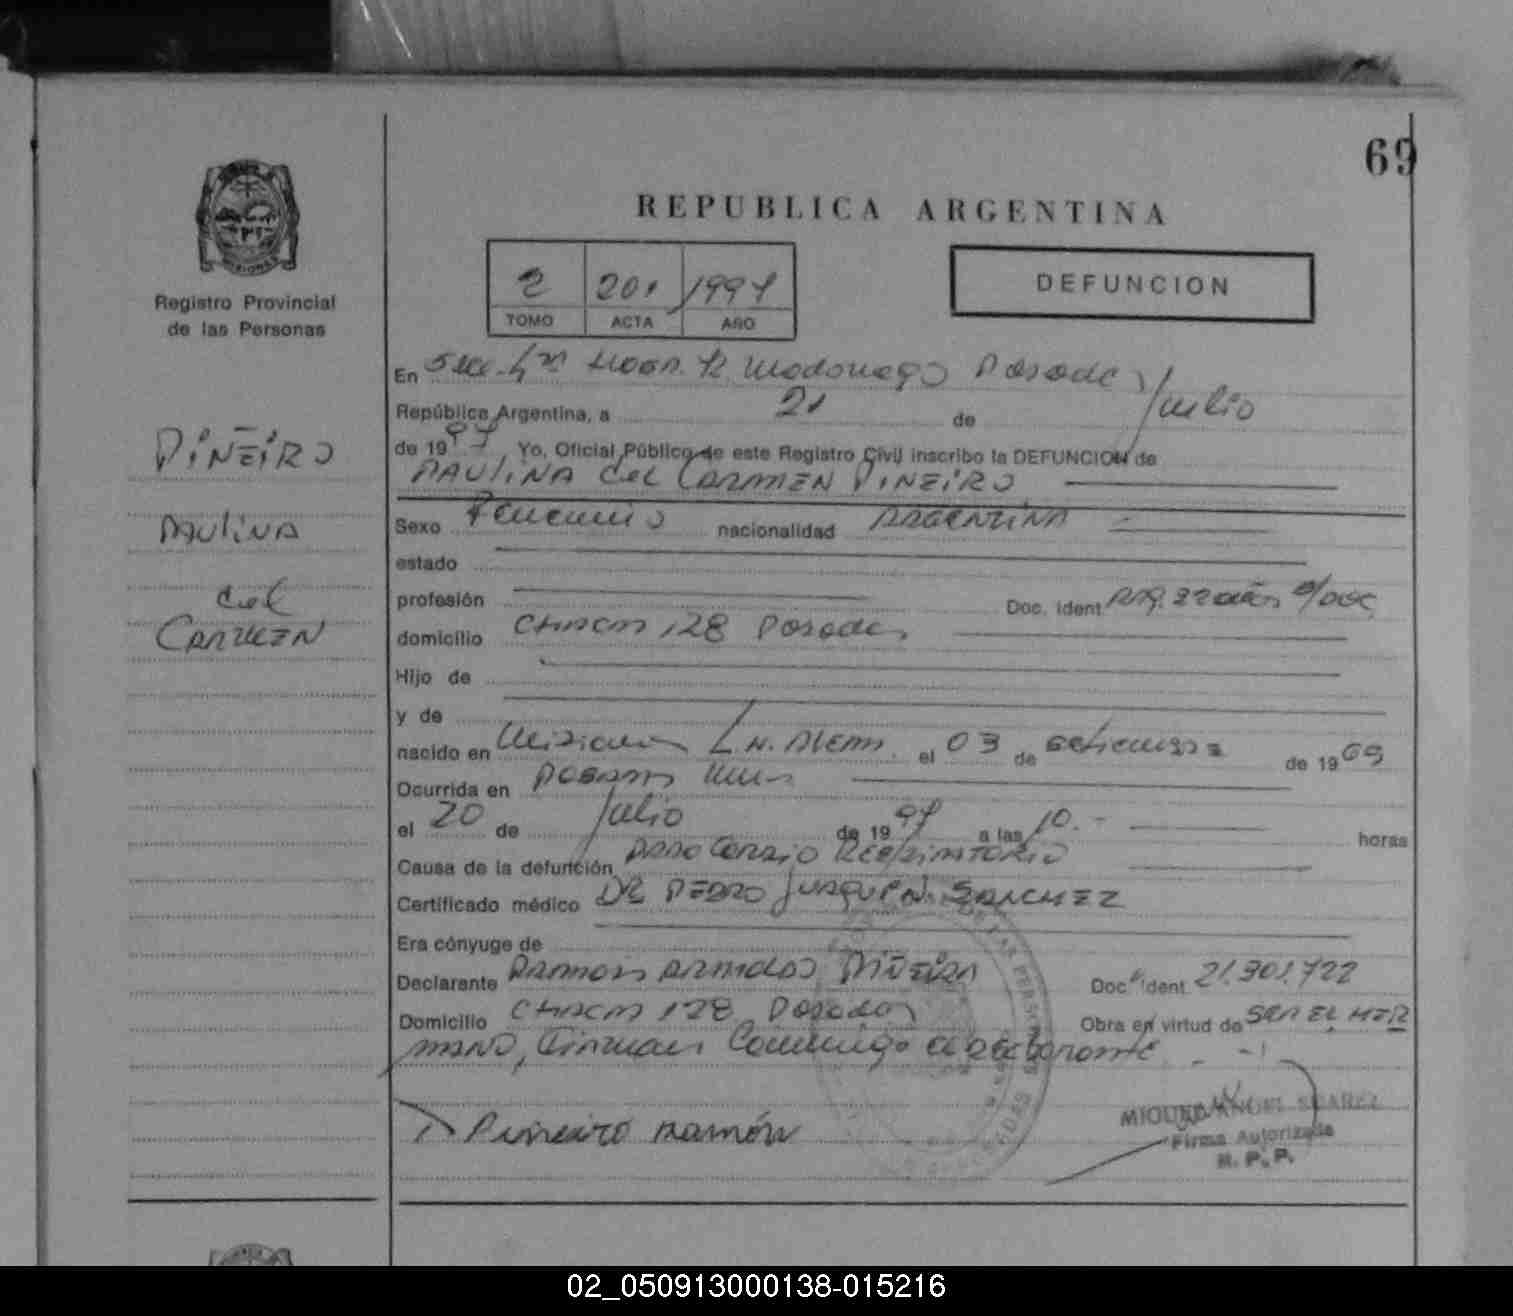 69
REPUBLICA ARGENTINA
Registro Provincial
de las Personas
2 201 1997
TOMO ACTA AÑO
DEFUNCION
PIÑEIRO
PAULINA
del
CARMEN
En Secc. 4ta Hosp. R. Madariaga Posadas
República Argentina, a 21 de Julio
de 1997 Yo, Oficial Público de este Registro Civil inscribo la DEFUNCION de
PAULINA del CARMEN PIÑEIRO
Sexo Femenino nacionalidad ARGENTINA
estado
profesión Doc. ident
domicilio CHACRA 128 Posadas
Hijo de
y de
nacido en Misiones L.N. ALEM el 03 de setiembre de 1969
Ocurrida en POSADAS Mnes
el 20 de Julio de 1997 a las 10.- horas
Causa de la defunción PARO CARDIO RESPIRATORIO
Certificado médico DR PEDRO SANCHEZ
Era cónyuge de
Declarante RAMON PIÑEIRO Doc. ident 21.301.722
Domicilio CHACRA 128 Posadas Obra en virtud de SER EL HER
MANO, Firman Conmigo el declarante
Piñeiro Ramón
MIGUEL ANGEL SUAREZ
Firma Autorizada
R. P. P.
02_050913000138-015216